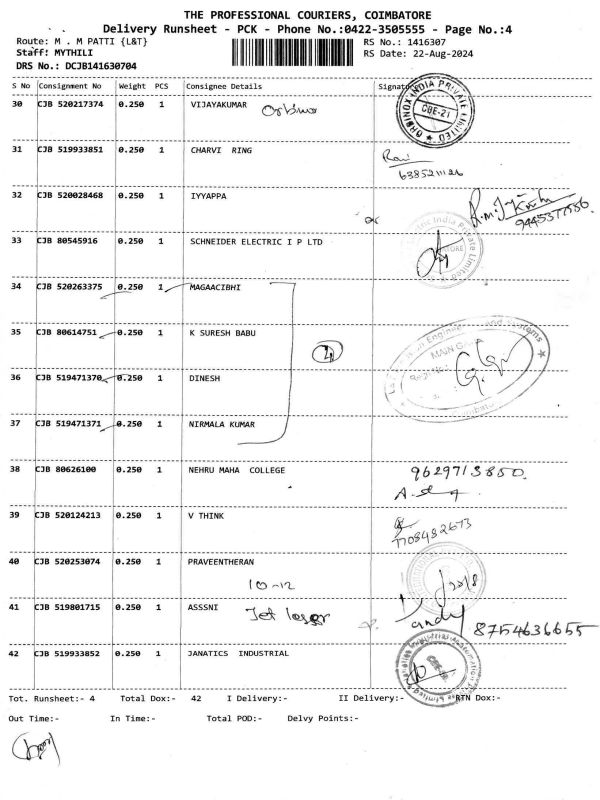 THE PROFESSIONAL COURIERS, COIMBATORE
Delivery Runsheet - PCK - Phone No.:0422-3505555 - Page No.:4
Route: M . M PATTI {L&T} RS No.: 1416307
Staff: MYTHILI RS Date: 22-Aug-2024
DRS No.: DCJB141630704
S No Consignment No Weight PCS Consignee Details Signature
30 CJB 520217374 0.250 1 VIJAYAKUMAR
ORBINOX INDIA PRIVATE LIMITED ★ CBE-21
31 CJB 519933851 0.250 1 CHARVI RING
Ravi
6385211126
32 CJB 520028468 0.250 1 IYYAPPA
9445377586
33 CJB 80545916 0.250 1 SCHNEIDER ELECTRIC I P LTD
India Private Limited
34 CJB 520263375 0.250 1 MAGAACIBHI
35 CJB 80614751 0.250 1 K SURESH BABU
4
MAIN GATE
36 CJB 519471370 0.250 1 DINESH
37 CJB 519471371 0.250 1 NIRMALA KUMAR
38 CJB 80626100 0.250 1 NEHRU MAHA COLLEGE 9629713850.
39 CJB 520124213 0.250 1 V THINK
7708482673
40 CJB 520253074 0.250 1 PRAVEENTHERAN
10-12
41 CJB 519801715 0.250 1 ASSSNI Jet laser
8754636655
42 CJB 519933852 0.250 1 JANATICS INDUSTRIAL
Tot. Runsheet:- 4 Total Dox:- 42 I Delivery:- II Delivery:- RTN Dox:-
Out Time:- In Time:- Total POD:- Delvy Points:-